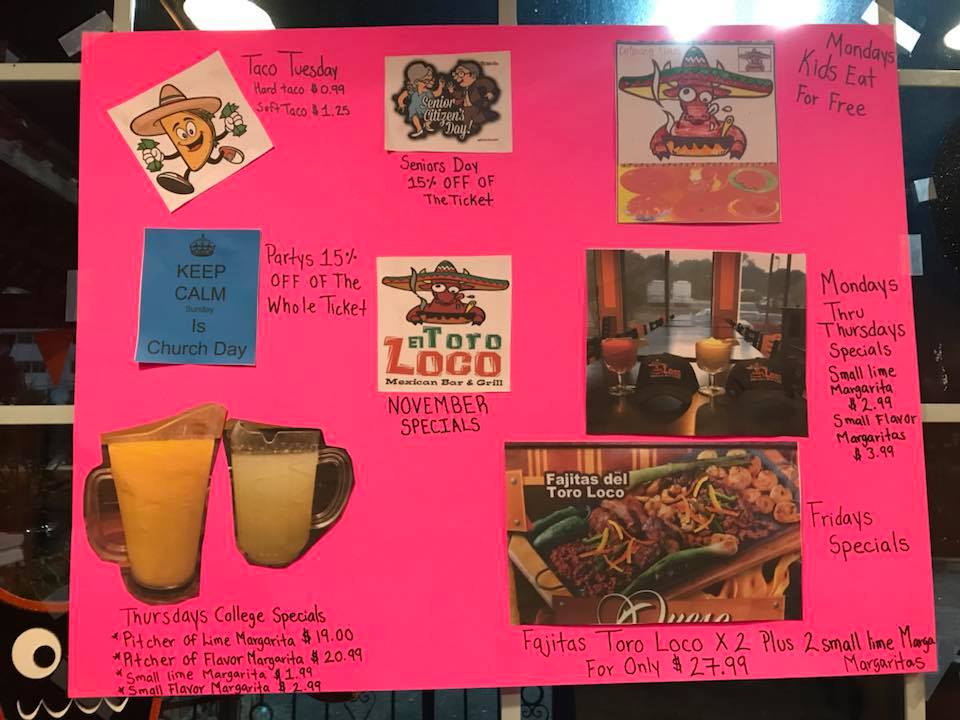 Taco Tuesday
Hard taco $0.99
Soft Taco $1.25
Senior
Citizen's
Day!
Seniors Day
15% OFF OF
The Ticket
Coloring
Mondays
Kids Eat
For Free
KEEP
CALM
Sunday
Is
Church Day
Partys 15%
OFF OF The
Whole Ticket
El Toro
Loco
Mexican Bar & Grill
NOVEMBER
SPECIALS
Mondays
Thru
Thursdays
Specials
Small lime
Margarita
$2.99
Small Flavor
Margaritas
$3.99
Fajitas del
Toro Loco
Queso
Fridays
Specials
Thursdays College Specials
*Pitcher of Lime Margarita $19.00
*Pitcher of Flavor Margarita $20.99
*Small lime Margarita $1.99
*Small Flavor Margarita $2.99
Fajitas Toro Loco X2 Plus 2 small lime Marga
Margaritas
For Only $27.99